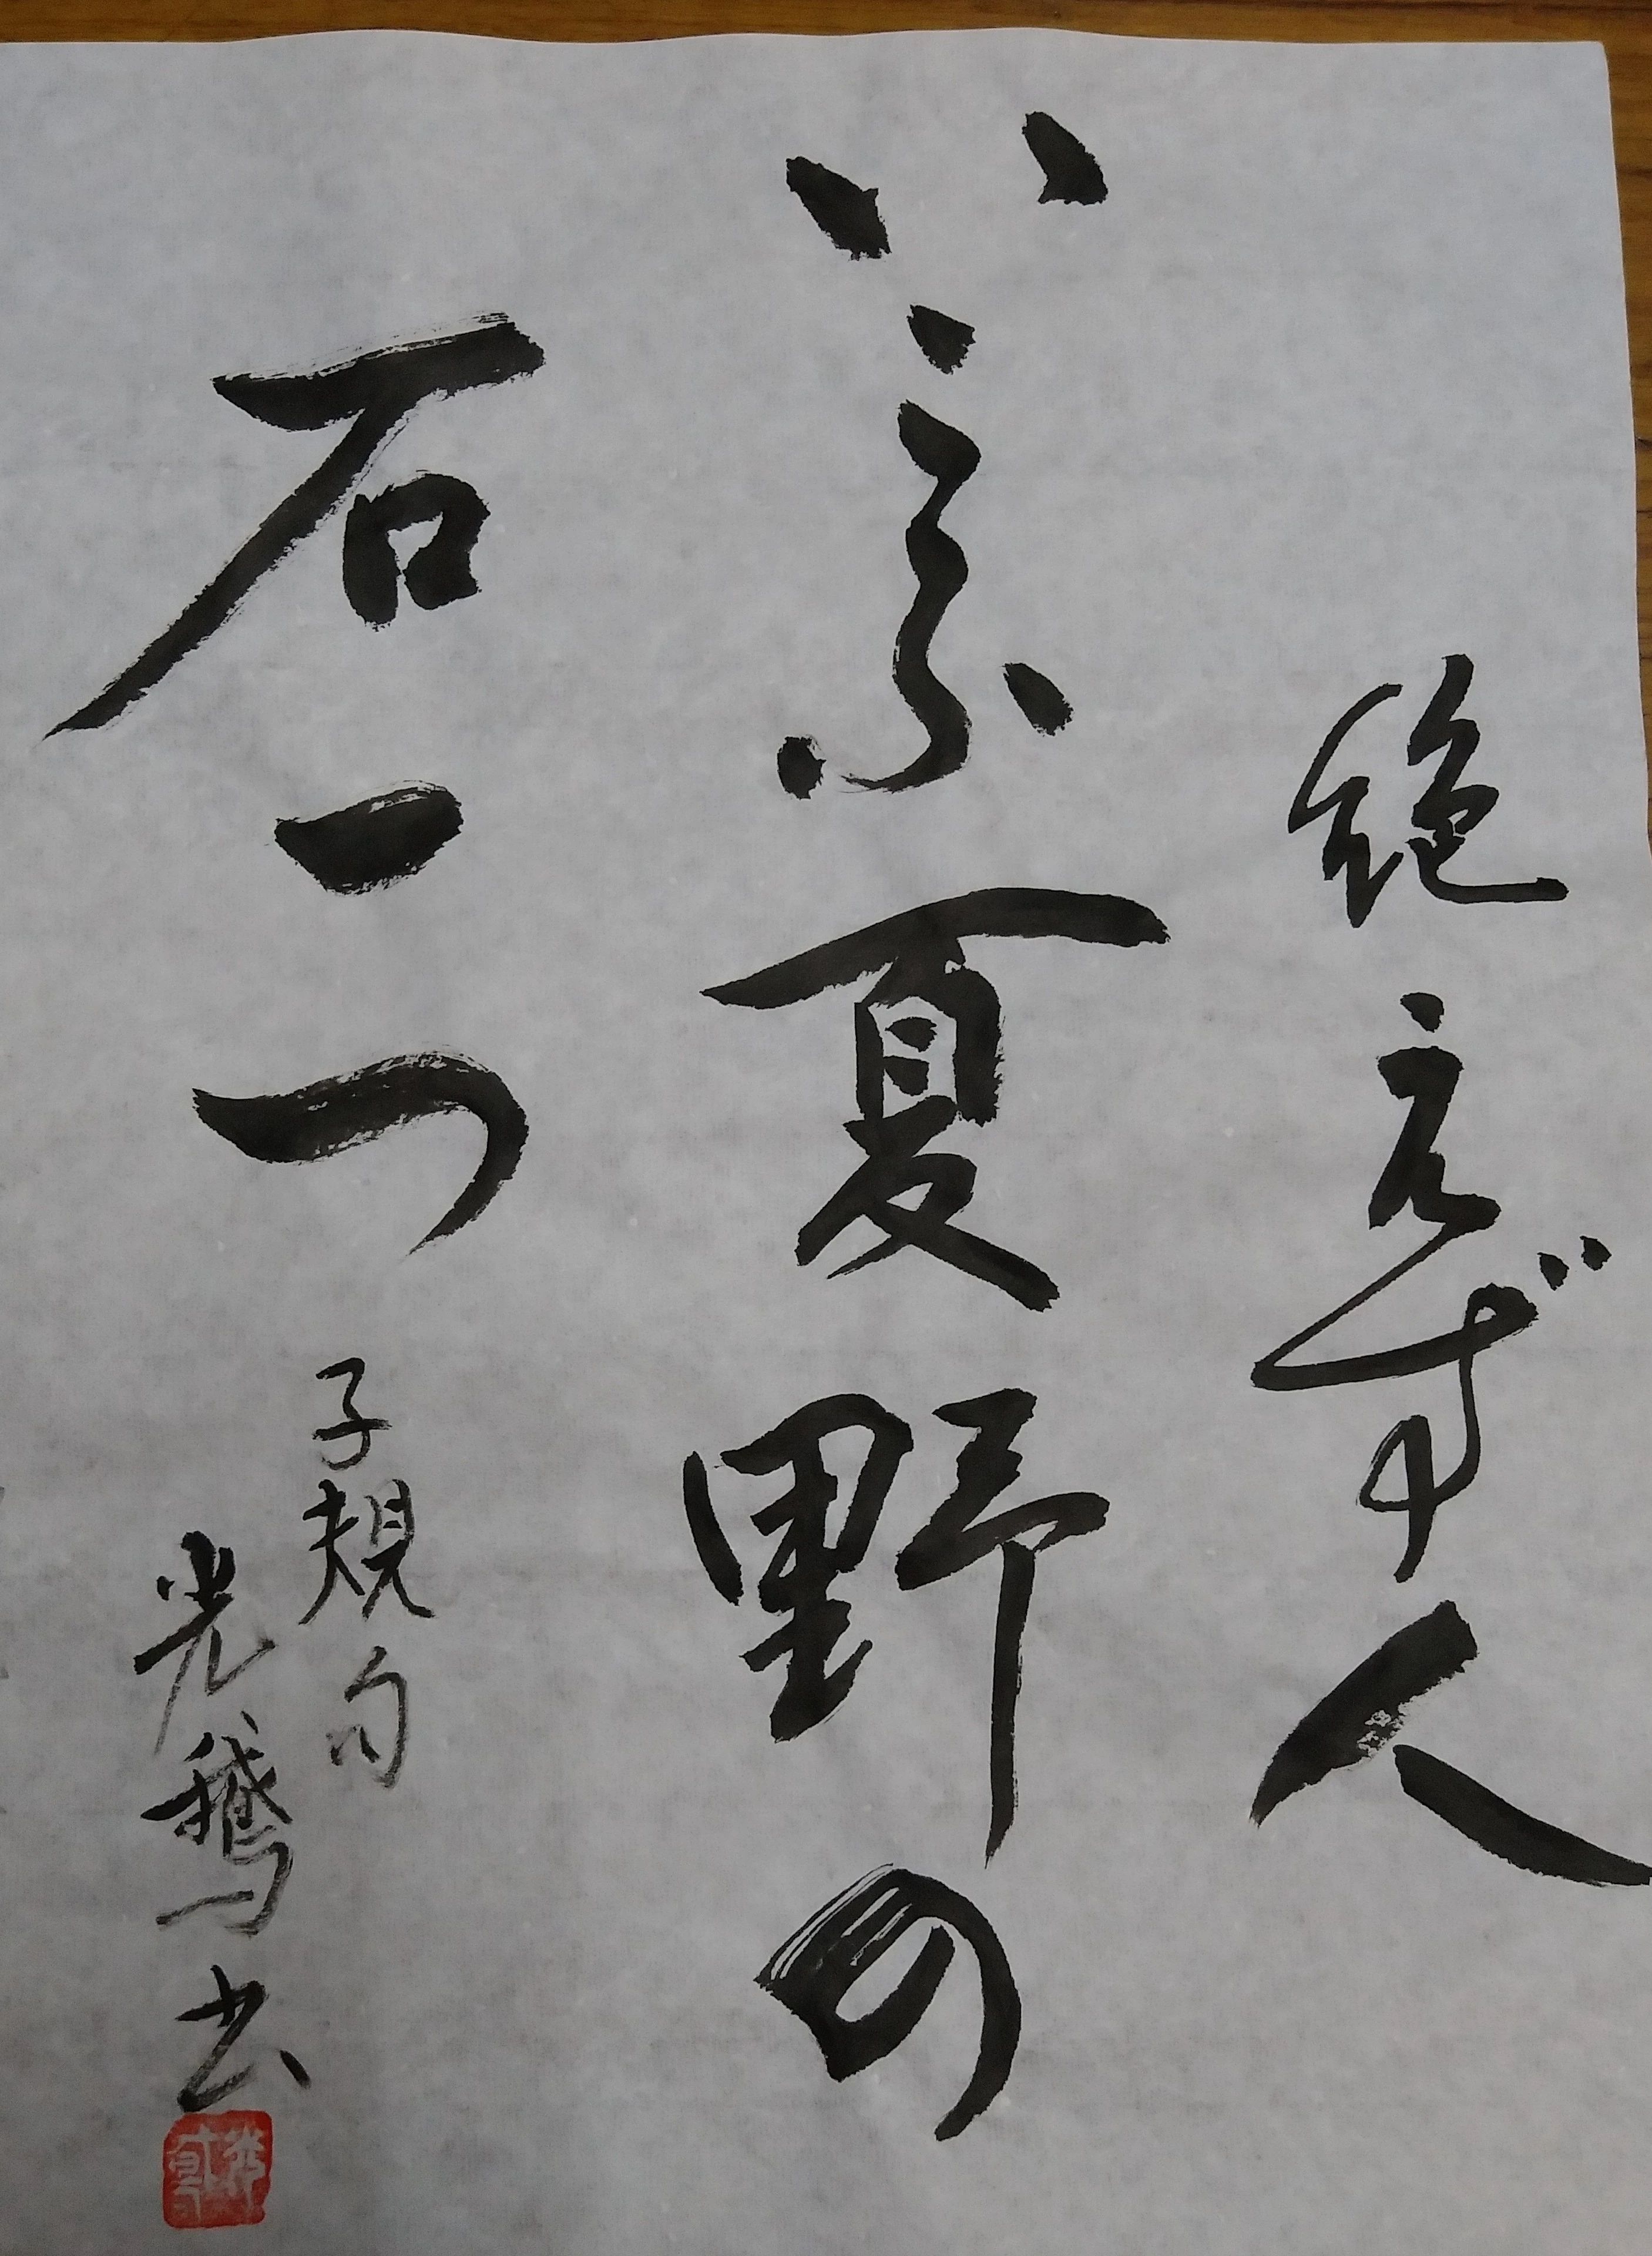 絶えず人
いこふ夏野の
石一つ
子規句
光鵞書